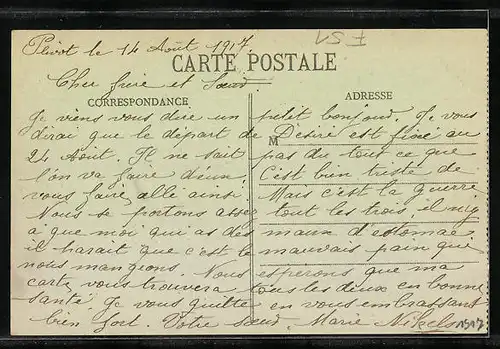 Plivot le 14 Août 1917.
CARTE POSTALE
Cher frère et Sœur
CORRESPONDANCE ADRESSE
Je viens vous dire un petit bonjour. Je vous
dirai que le départ de Désiré est fixé au
M
24 Août. Il ne sait pas du tout ce que
l'on va faire d'eux. C'est bien triste de
vous faire allé ainsi. Mais c'est la guerre
Nous se portons assez tout les trois, il n'y
a que moi qui as des maux d'estomac
il parait que c'est le mauvais pain que
nous mangions. Nous esperons que ma
carte vous trouvera tous les deux en bonne
santé. Je vous quitte en vous embrassant
bien fort. Votre sœur. Marie Nikels
1917